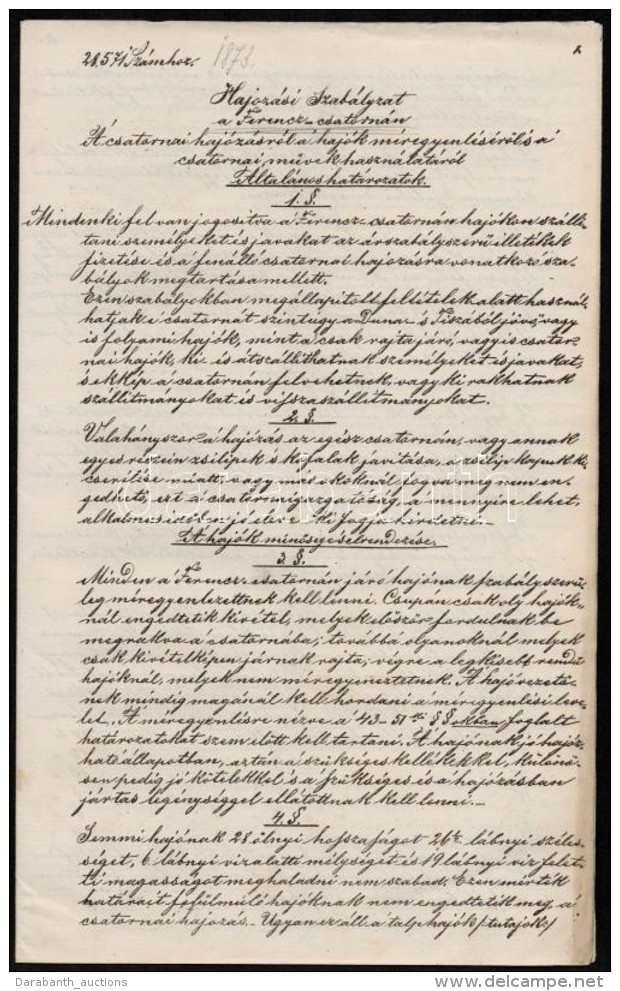 28.571 Számhoz. 1873.
1.
Hajozási Szabályzat
a Ferencz-csatornán
A csatornai hajózásról a hajók méregyenlésérül s a'
csatornai művek használatáról
Általános határozatok.
1. §.
Mindenki fel van jogosítva a' Ferencz-csatornán hajókon szálli-
tani személyeket és javakat az árszabályszerű illetékek
fizetése és a fenálló csatornai hajozásra vonatkozó sza-
bályok megtartása mellett.
Ezen szabályokban megállapitott feltételek alatt használ-
hatják a' csatornát szintúgy a Duna- 's Tiszából jövő vagy
is folyami hajók, mint a' csak rajta járó, vagyis csator-
nai hajók, ki- is átszállithatnak személyeket és javakat,
's ekkép a' csatornán felvehetnek, vagy ki rakhatnak
szállitmányokat is viszaszállitmányokat.
2. §.
Valahányszor a' hajózás az egész csatornán, vagy annak
egyes részein zsilipek 's kőfalak javitása, a zsilip kapuk ki
cserélése miatt, vagy más okoknál fogva meg nem en-
gedheti, ezt a' csatorna igazgatóság, a' mennyire lehet,
alkalmas időben jó eleve ki fogja hirdetni.
A hajók minősége s elrendezése.
3. §.
Minden a' Ferencz-csatornán járó hajónak szabályszerü-
leg méregyenlezettnek kell lenni. Csupán csak oly hajók-
nál engedtetik kivétel, melyek először fordulnak be
megrakva a' csatornába; továbbá olyanoknál melyek
csak kivételképen járnak rajta, végre a legkisebb rendü
hajóknál, melyek nem méregyeneztetnek. A hajóvezető-
nek mindig magánál kell hordani a méregyenlési leve-
let. A méregyenlésre nézve a' 43-51 §§ okban foglalt
határozatokat szem előtt kell tartani. A hajónak jó hajóz-
ható állapotban, aztán a szükséges kellékekkel, különö-
sen pedig jó kötelekkel és a szükséges és a' hajózásban
jártas legénységgel ellátottnak kell lenni.
4. §.
Semmi hajónak 28 ölnyi hosszaságot 26½ lábnyi széles-
séget, 6 lábnyi vizalatti mélységet és 19 lábnyi viz felet-
ti magasságot meghaladni nem szabad. Ezen mérték
határait felülmúló hajóknak nem engedtetik meg, a'
csatornai hajozás. Ugyan ez áll a' talp hajók /: tutajok:/
Darabanth_auctions
www.delcampe.net